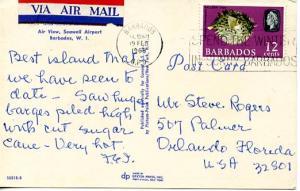 VIA AIR MAIL
Air View, Seawell Airport
Barbados, W. I.
BARBADOS
19 FEB
SPEND
WINTER
IN
BARBADOS
12
cents
BARBADOS
Post Card
Best island Mai
we have seen to
date - Saw huge
barges piled high
with cut sugar
cane - Very hot.
Mr Steve Rogers
507 Palmer
Orlando Florida
USA 32801
dp